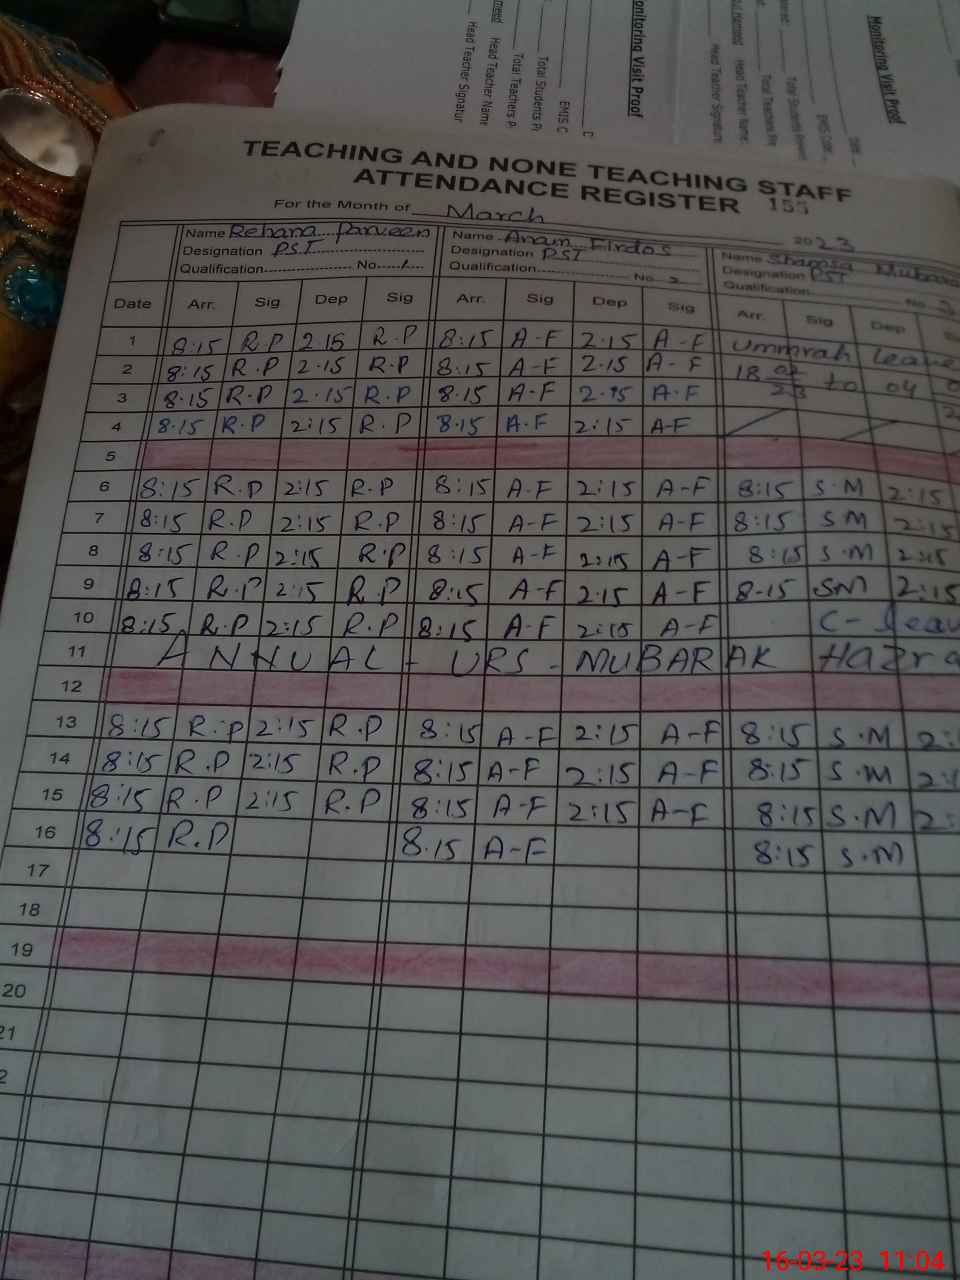 Monitoring Visit Proof
Head Teacher Signatur
Head Teacher Name
Total Teachers P
Total Students P
EMIS C
Monitoring Visit Proof
Head Teacher Signature
Head Teacher Name:
Total Teachers Pre
Total Students
EMIS Code
TEACHING AND NONE TEACHING STAFF
ATTENDANCE REGISTER 155
For the Month of March 2023
Name Rehana Parveen Name Anam Firdos Name Shamsa Mubara
Designation PST Designation PST Designation PST
Qualification No. 1 Qualification No 2 Qualification No 3
Date Arr. Sig Dep Sig Arr. Sig Dep Sig Arr. Sig Dep
1 8:15 R.P 2.15 R.P 8:15 A-F 2.15 A-F Ummrah leave
2 8:15 R.P 2.15 R.P 8:15 A-F 2.15 A-F 18 02
3 8.15 R.P 2.15 R.P 8.15 A.F 2.15 A.F 23 to 04
4 8.15 R.P 2:15 R.P 8.15 A.F 2:15 A-F
5
6 8:15 R.P 2:15 R.P 8:15 A.F 2:15 A-F 8:15 S.M 2:15
7 8:15 R.P 2:15 R.P 8:15 A-F 2:15 A-F 8:15 SM 2:15
8 8:15 R.P 2:15 R.P 8:15 A-F 2:15 A-F 8:15 S.M 2:15
9 8:15 R.P 2:15 R.P 8:15 A-F 2.15 A-F 8-15 SM 2:15
10 8:15 R.P 2:15 R.P 8:15 A.F 2:15 A-F C-leav
11 ANNUAL - URS - MUBARAK Hazra
12
13 8:15 R.P 2:15 R.P 8:15 A-F 2:15 A-F 8:15 S.M 2:
14 8:15 R.P 2:15 R.P 8:15 A-F 2:15 A-F 8:15 S.M 2:1
15 8:15 R.P 2:15 R.P 8:15 A-F 2:15 A-F 8:15 S.M 2:
16 8:15 R.P 8.15 A-F 8:15 S.M
17
18
19
20
21
2
16-03-23 11:04